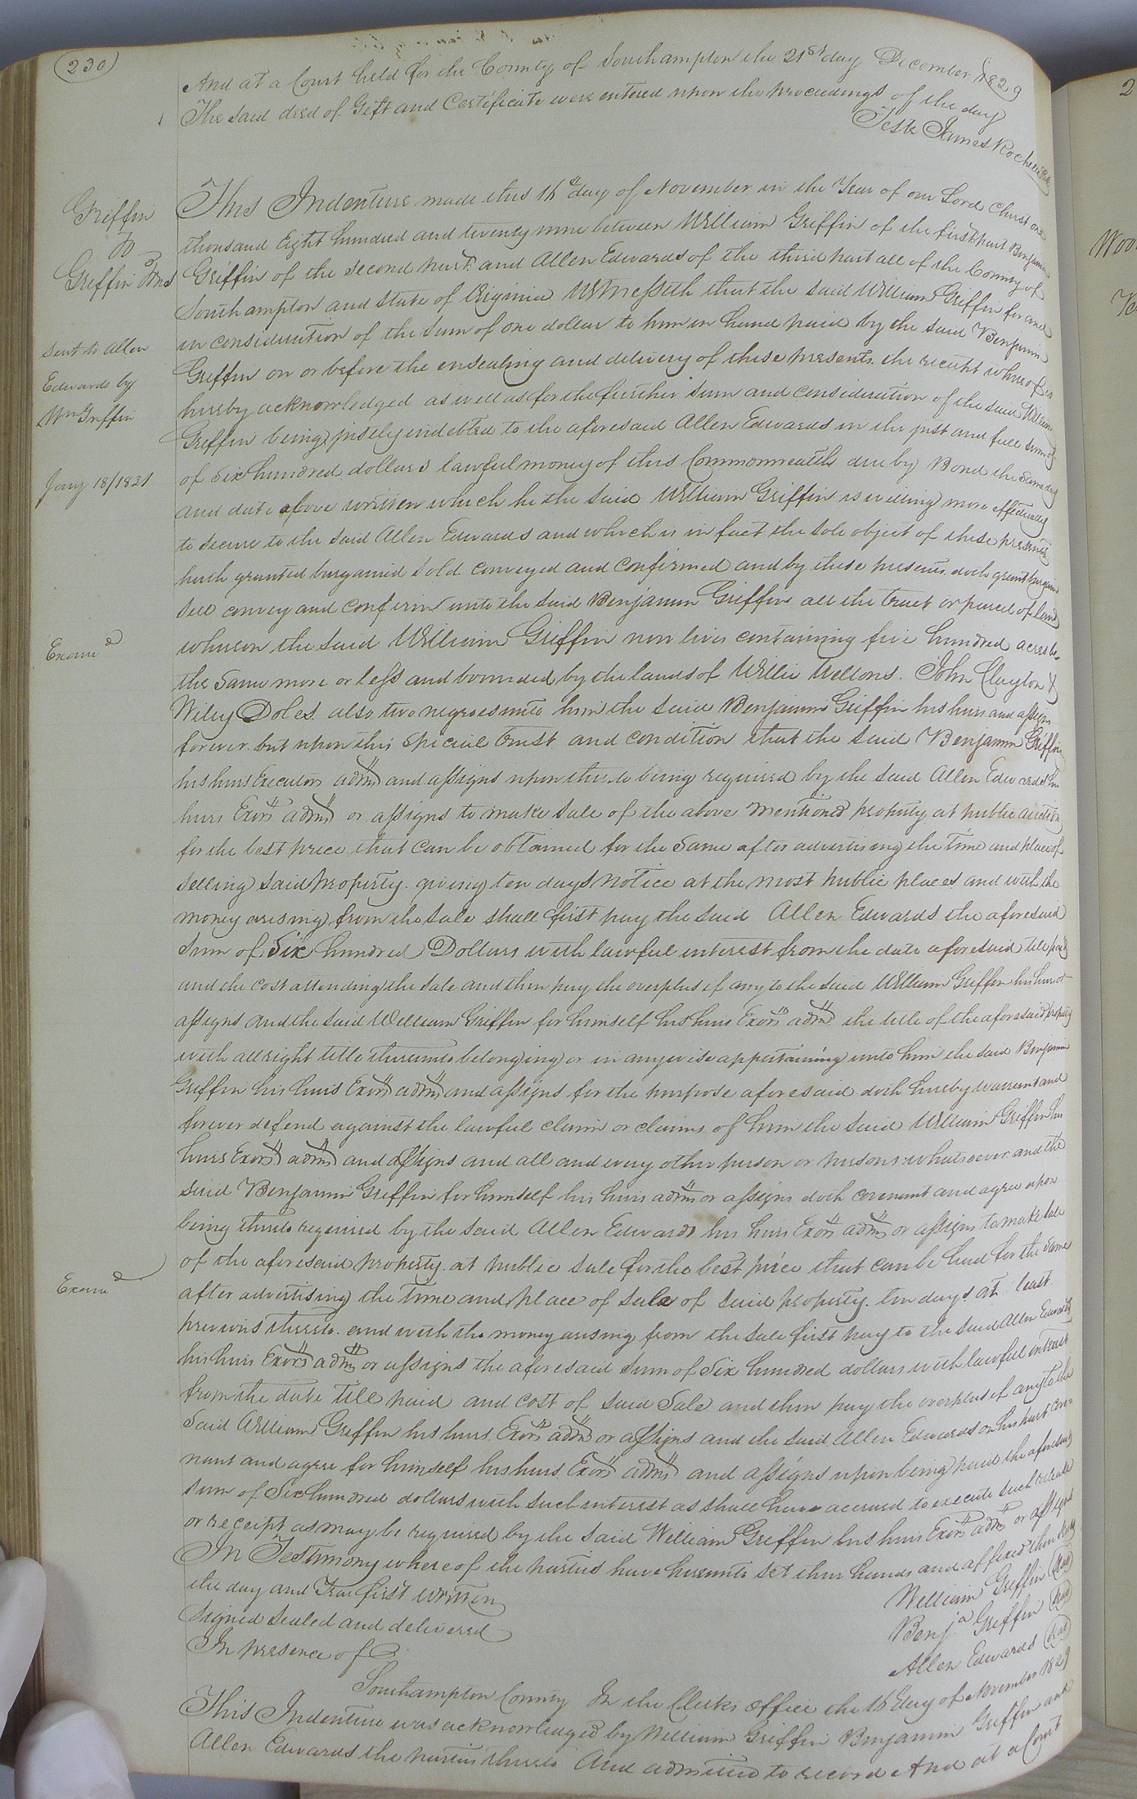 230
And at a Court held for the County of Southampton the 21st day December 1829
The said deed of Gift and Certificate were entered upon the proceedings of the day
Teste James Rochelle
Griffin
to
Griffin
Sent to Allen
Edwards by
Wm Griffin
Jany 18/1831
Examd
Examd
This Indenture made this 16th day of November in the Year of our Lord Christ one
thousand Eight hundred and twenty nine between William Griffin of the first part Benjamin
Griffin of the second part and Allen Edwards of the third part all of the County of
Southampton and State of Virginia Witnesseth that the said William Griffin for and
in consideration of the sum of one dollar to him in hand paid by the said Benjamin
Griffin on or before the ensealing and delivery of these presents the receipt whereof is
hereby acknowledged as well as for the further sum and consideration of the said William
Griffin being justly indebted to the aforesaid Allen Edwards in the just and full sum of
of Six hundred dollars lawful money of this Commonwealth due by Bond the same day
and date above written which he the said William Griffin is willing more effectually
to secure to the said Allen Edwards and which is in fact the sole object of these presents
hath granted bargained sold conveyed and confirmed and by these presents doth grant bargain
sell convey and confirm unto the said Benjamin Griffin all the tract or parcel of land
whereon the said William Griffin now lives containing five hundred acres be
the same more or less and bounded by the lands of Willie Wellons. John Clayton &
Wiley Doles. also two negroes unto him the said Benjamin Griffin his heirs and assigns
forever. but upon this Special trust and condition that the said Benjamin Griffin
his heirs Executors admrs and assigns upon thereto being required by the said Allen Edwards his
heirs Exors admrs or assigns to make sale of the above mentioned property at public auction
for the best price that can be obtained for the same after advertising the time and place of
selling said property. giving ten days notice at the most public places and with the
money arising from the sale shall first pay the said Allen Edwards the aforesaid
sum of Six hundred Dollars with lawful interest from the date aforesaid till paid
and the cost attending the sale and then pay the overplus if any to the said William Griffin his heirs or
assigns and the said William Griffin for himself his heirs Exors admrs the title of the aforesaid property
with all right title thereunto belonging or in anywise appertaining unto him the said Benjamin
Griffin his heirs Exors admrs and assigns for the purpose aforesaid doth hereby warrant and
forever defend against the lawful claim or claims of him the said William Griffin his
heirs Exors admrs and assigns and all and every other person or persons whatsoever and the
said Benjamin Griffin for himself his heirs admrs or assigns doth covenant and agree upon
being thereto required by the said Allen Edwards his heirs Exors admrs or assigns to make sale
of the aforesaid property. at public sale for the best price that can be had for the same
after advertising the time and place of sale of said property. ten days at least
previous thereto. and with the money arising from the sale first pay to the said Allen Edwards
his heirs Exors admrs or assigns the aforesaid sum of Six hundred dollars with lawful interest
from the date till paid and cost of said Sale and then pay the overplus if any to the
said William Griffin his heirs Exors admrs or assigns and the said Allen Edwards on his part cove-
nant and agree for himself his heirs Exors admrs and assigns upon being paid the aforesaid
sum of Six hundred dollars with such interest as shall have accrued to execute such release
or receipt as may be required by the said William Griffin his heirs Exors admrs or assigns
In Testimony whereof the parties have hereunto set their hands and affixed their seals
the day and Year first written
William Griffin Seal
Signed sealed and delivered
Benja Griffin Seal
In presence of
Allen Edwards Seal
Southampton County In the Clerks office the 16th day of November 1829
This Indenture was acknowledged by William Griffin Benjamin Griffin and
Allen Edwards the parties thereto And admitted to record And at a Court